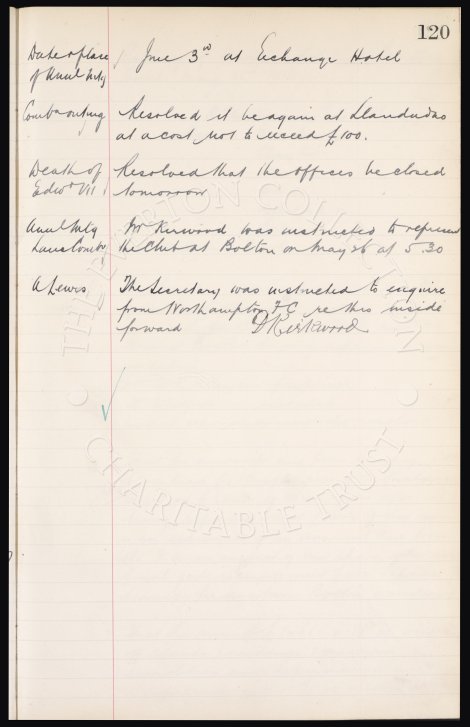 120
Date & place of Anul Mtg June 3rd at Exchange Hotel
Combs outing Resolved it be again at Llandudno
at a cost not to exceed £100.
Death of Resolved that the offices be closed
Edwd VII tomorrow
Anul Mtg Mr Kirwood was instructed to represent
Lancs Comby the Club at Bolton on May 26 at 5.30
A Lewis The Secretary was instructed to enquire
from Northampton F C re this inside
forward D Kirkwood
THE EVERTON COLLECTION
CHARITABLE TRUST